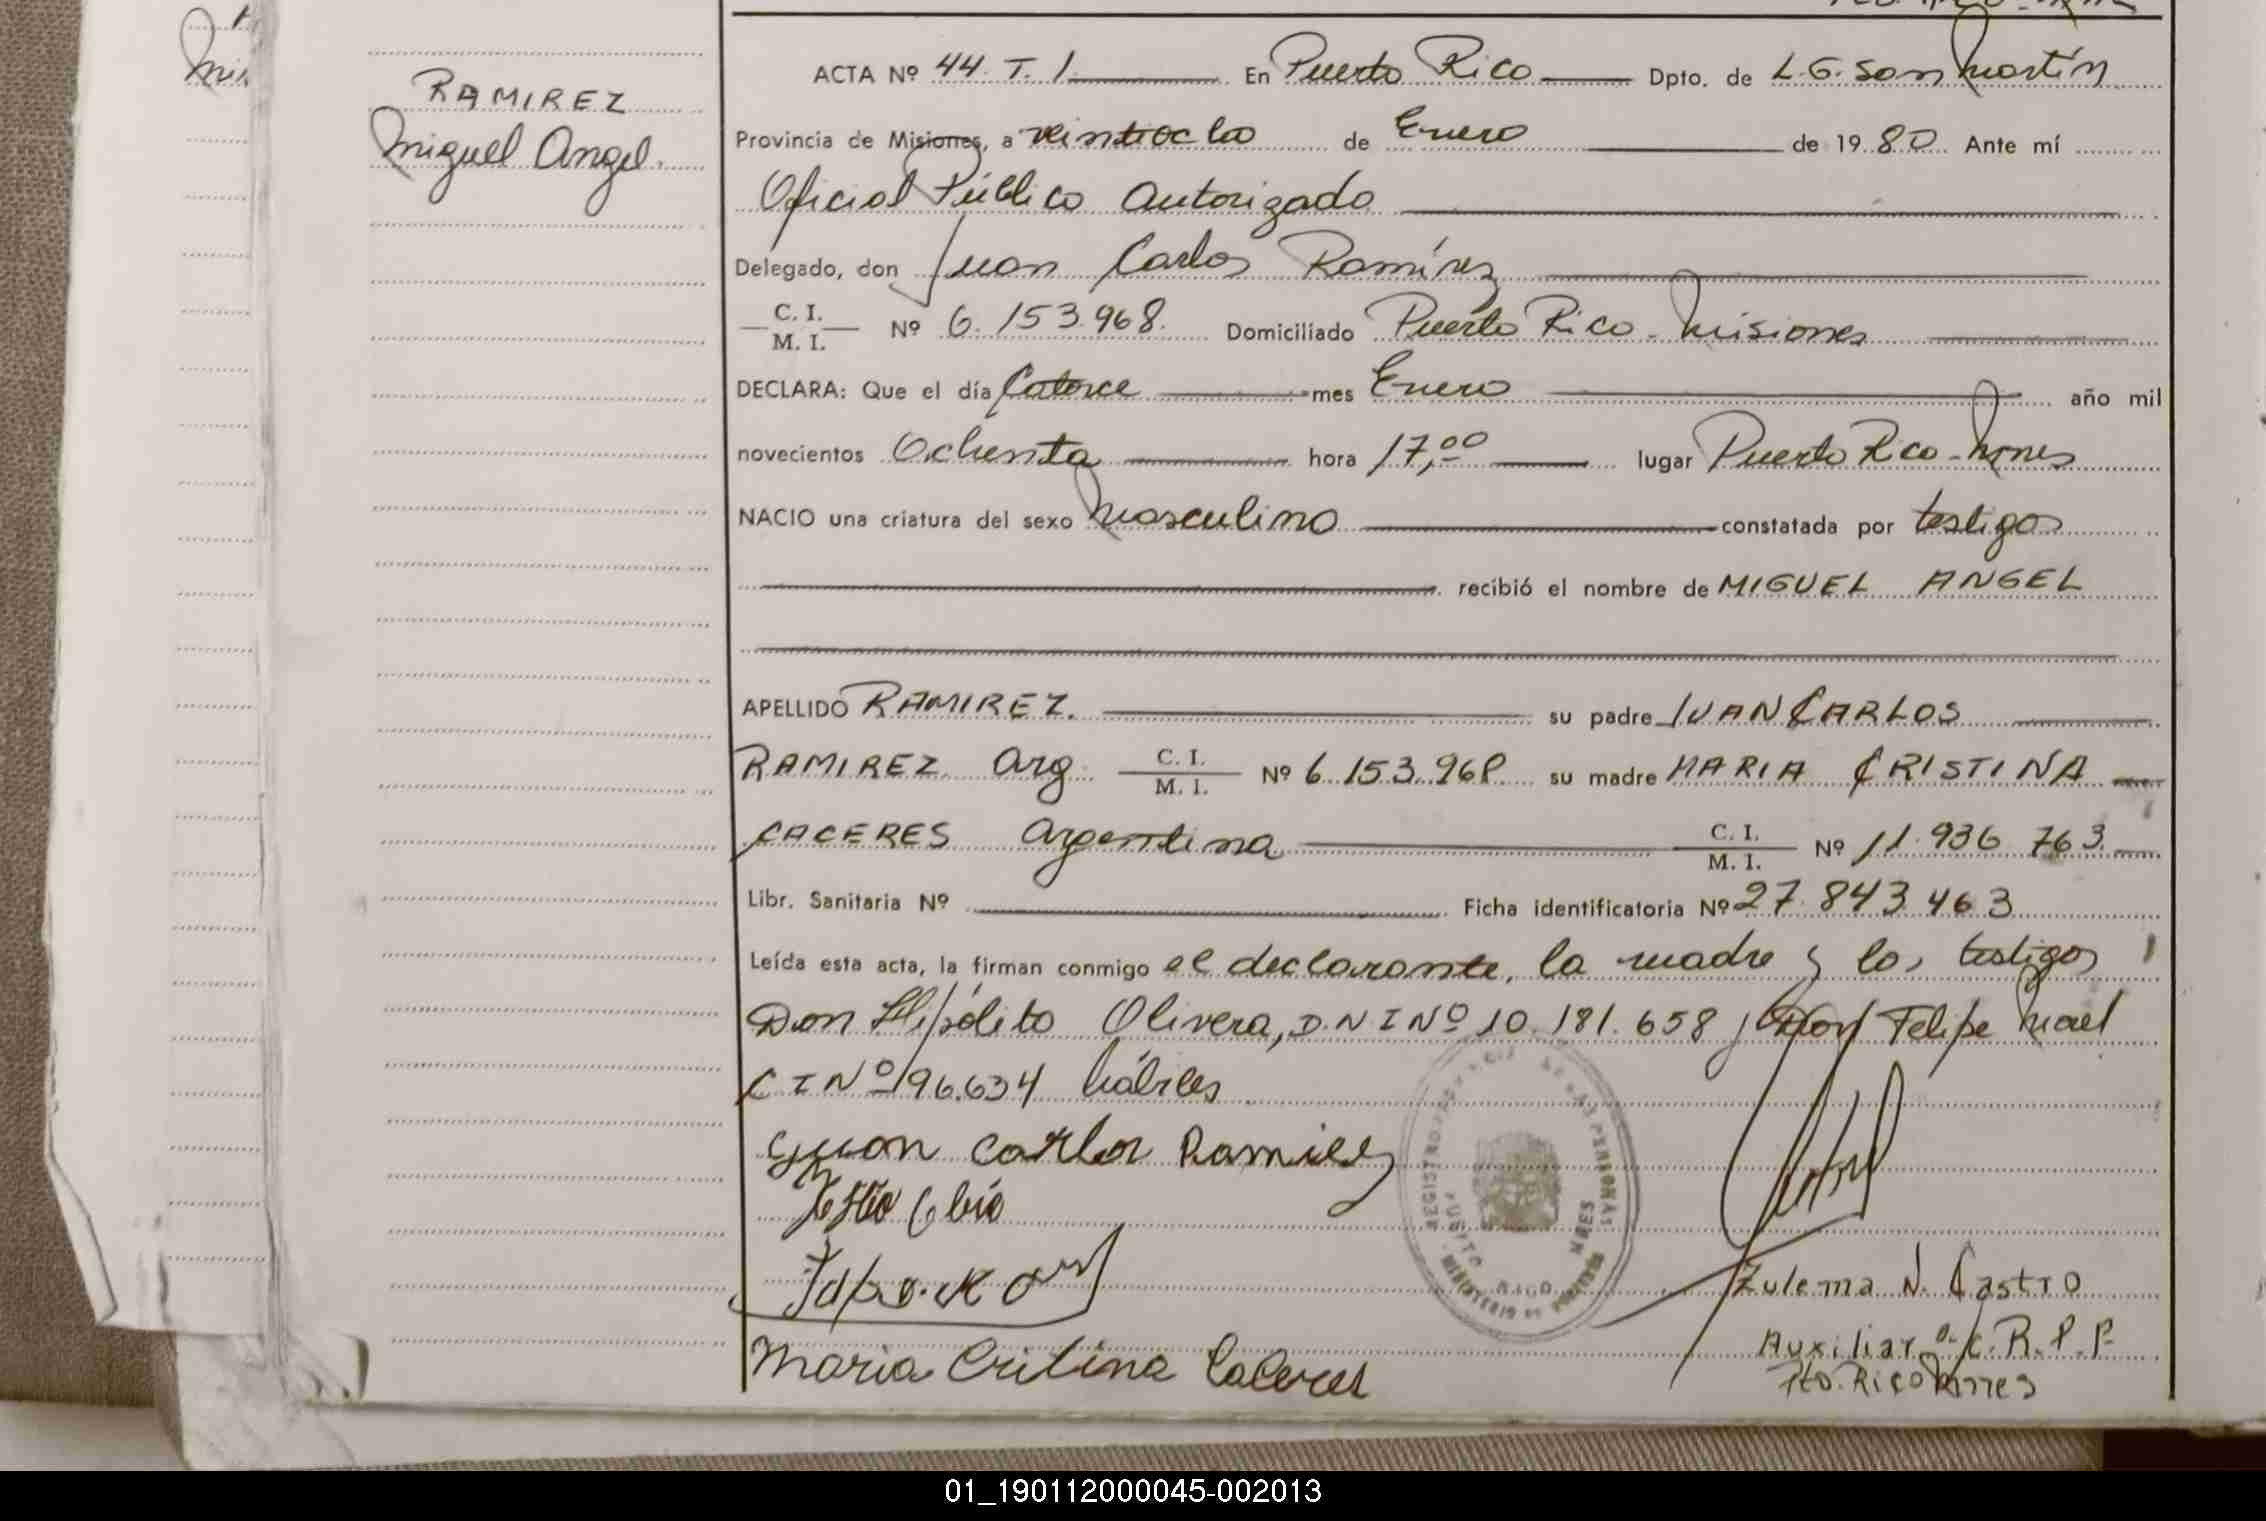 RAMIREZ
Miguel Angel.
ACTA Nº 44. T. 1. En Puerto Rico Dpto. de L.G. San Martín
Provincia de Misiones, a veintiocho de Enero de 1980. Ante mí
Oficial Público Autorizado
Delegado, don Juan Carlos Ramírez
C. I.
M. I. Nº 6.153.968. Domiciliado Puerto Rico - Misiones
DECLARA: Que el día Catorce mes Enero año mil
novecientos Ochenta hora 17,00 lugar Puerto Rico - Mnes
NACIO una criatura del sexo Masculino constatada por testigos
recibió el nombre de MIGUEL ANGEL
APELLIDO RAMIREZ. su padre JUAN CARLOS
RAMIREZ Arg. C. I. M. I. Nº 6.153.968 su madre MARIA CRISTINA
CACERES Argentina C. I. M. I. Nº 11.936.763.
Libr. Sanitaria Nº Ficha identificatoria Nº 27.843.463
Leída esta acta, la firman conmigo el declarante, la madre y los testigos
Don Hipólito Olivera, D.N.I Nº 10.181.658 y Don Felipe
C I Nº 196.634 hábiles
Juan Carlos Ramirez
REGISTRO DE LAS PERSONAS
PUERTO RICO MNES
MINISTERIO DE
Zulema N. Castro
Auxiliar a/c. R.P.P.
Pto. Rico Mnes
Maria Critina Caceres
01_190112000045-002013